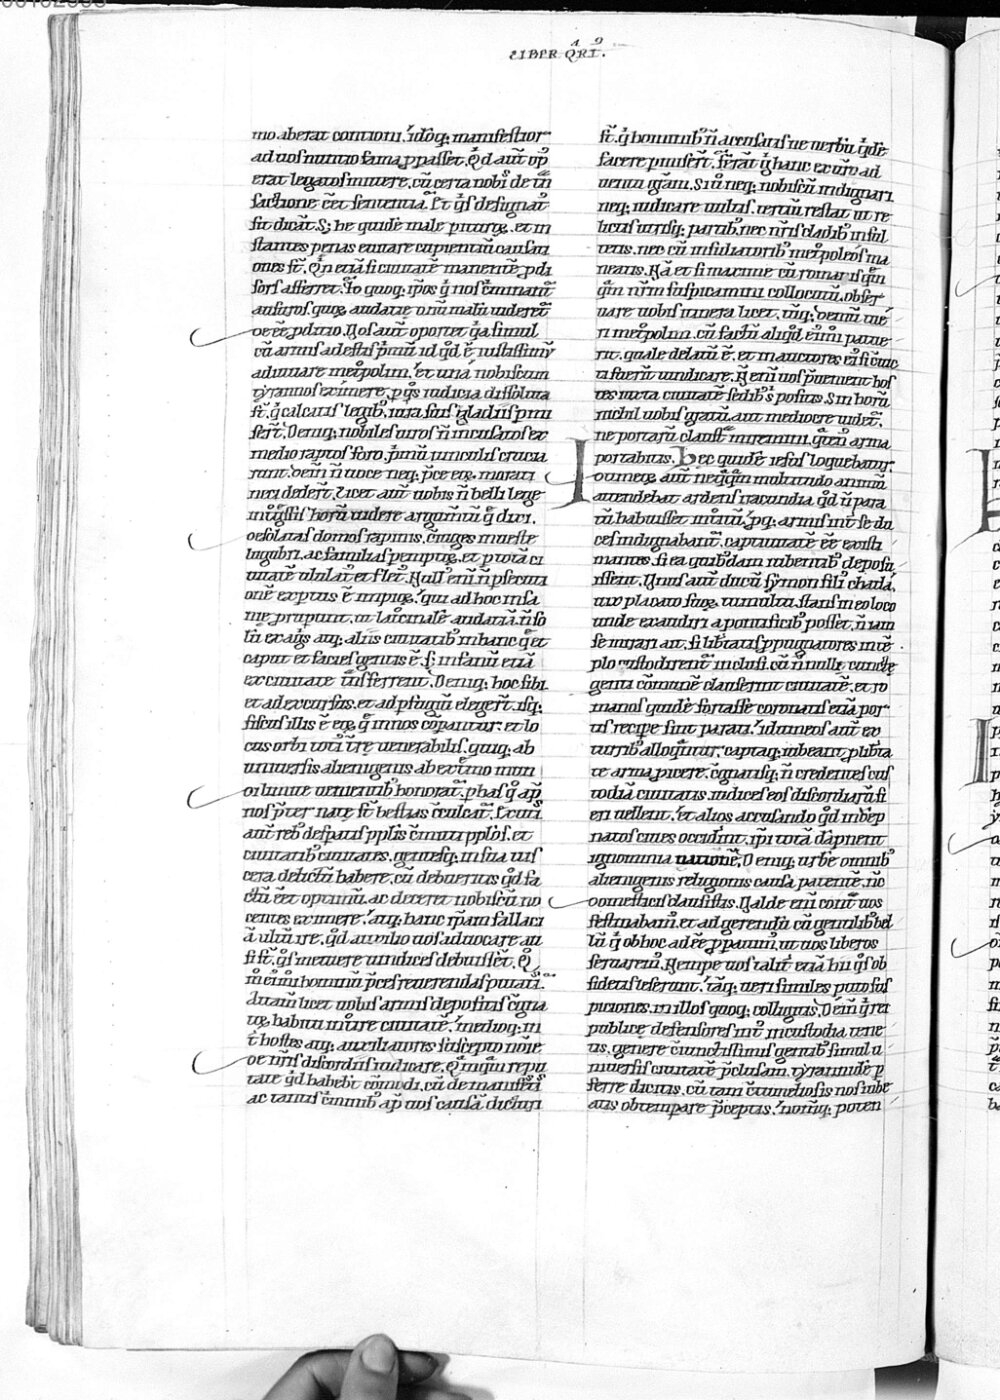 LIBER QRT⁹.
mo aberat contioni. idoq; manifestior
ad uos nuntio fama ꝑpasset. Qd aut̄ oꝑ
erat legatos mittere. cū certa nobis de
factione c̄et sententia. Et q̄s designat
sit dicat. S; he quidē
stantes penas euitare cupientiū causati
ones st̄. Qn̄ etiā si ciuitatē manentē ꝑdi
sors afferret.
ausuros. quoꝝ audatie unū malū uideret̄
deēē ꝑditio. Nos aut̄ oportet q̄a simul
cū armis adestis p̄mū id qd ē iustissimū
adiuuare met̄polim. et unā nobiscum
tyrannos eximere. ꝑ q̄s iudicia dissoluta
st̄. q̄ calcatis legib; iura suis gladiis ꝑmi
sert̄. Deniq; nobiles uiros n̄ incusatos ex
medio raptos foro. p̄mū uinculis crucia
runt. dein n̄ uoce neq; p̄ce eoꝝ morati
neci dedert̄. Licet aut̄ uobis n̄ belli lege
int̄gssis horū uidere argum̄tū q̄ dixi.
desolatas domos rapinis. c̄iuges mueste
lugubri. ac familias ꝑemptoꝝ. et ꝑ totā ci
uitatē ululat̄ et flet̄. Null' eni n̄ ꝑsecuti
onē exptus ē impioꝝ. qui ad hoc insa
nie ꝑruꝑunt. ut latcinalē audatiā n̄ so
lū ex agis atq; aliis ciuitatib; in hanc q̄ et
caput et facies gentis ē. s; in fanū etiā
ex ciuitate t̄nsferrent. Deniq; hoc sibi
et ad excursus. et ad ꝑfugiū elegert̄. isq;
fiscus illis ē eoꝝ. q̄ in nos coꝑantur. et lo
cus orbi toti t̄re uenerabilis. quiq; ab
uniuersis alienigenis ab ext̄mo mun
di limite uenientib; honorat̄. ꝑ has q̄ aꝑ
nos p̄ter nate st̄ bestias c̄culcat̄.
aut̄ reb; desꝑatis pplis c̄mitti pplos. et
ciuitatib; ciuitates. gentesq; in sua uis
cera delictū habere. cū debuerius qd fa
ctū eet optimū. ac deceret nobiscū no
centes eximere. atq; hanc ipsam fallaci
ā ulcisci. qd auxilio uos aduocare au
si st̄. q̄s metuere uindices debuisset̄.
eimi hominū p̄ces reuerendas putati.
duatm̄ licet uobis armis depositis c̄gna
toꝝ. habitu int̄re ciuitatē. medioq; in
t̄ hostes atq; auxiliatores suscepto noīe
de n̄ris discordiis iudicare. Q̄mq̄ reꝑu
tate qd habebt̄ com̄odi. cū de manifestis
ac tantis c̄minib; aꝑ uos causā dicturi
st̄. q̄ hominib; n̄ accusatis ne uerbū q̄dē
facere ꝑmisert̄. Ferāt q̄ hanc ex ur̄o ad
uentu gr̄am. Si ū neq; nobiscū indignari
neq; iudicare uultis. terciū restat ut re
lictis utrisq; partib; nec n̄ris cladib; insul
tetis. nec cū insidiatorib; met̄poleos ma
neatis. Nā et si maxime cū romanis q̄m
q̄m n̄r̄m suspicamini collocutū. obser
uare uobis itinera licet. utiq; demū tue
ri met̄polim. cū factū aliqd eimi patue
rit. quale delatū ē. et in auctores eī si cuic
ti fuerit uindicare. N̄ eni uos p̄uenient hos
tes iuxta ciuitatē sedib; positos. Si n̄ horū
nichil uobis gratū aut mediocre uidet̄.
ne portarū claust̄ miremini. quēm arma
portabitis. Hec quidē iesus loquebatur
Idumeoꝝ aut̄ neq̄q̄m multitudo animū
attendebat ardens iracundia qd n̄ para
tū habuisset int̄itū. ꝑq; armis int̄ se du
ces indignabant̄. captiuitatē ēē existi
mantes si ea quib;dam iubentib; deposu
issent. Unus aut̄ ducū symon fili' chatlā.
uix placato suoꝝ tumultu stans in eo loco
unde exaudiri a pontificib; posset. n̄ iam
se mirari ait. si libtatis ꝓpugnatores in tē
plo custodirent̄ inclusi. cū n̄ nulli cuncte
genti c̄munē clauserint ciuitatē. et ro
manos quidē fortasse coronatis etiā por
tis recipe sint parati. idumeos aut̄ ex
turrib; alloq̄ntur. captaq; iubeant ꝑ libta
te arma ꝓicere. c̄gnatisq; n̄ credentes cus
todiā ciuitatis. iudices eos discordiarū fi
eri uellent. et alios accusando qd indēp
natos ciues occidint. ipi totā dāpnent
ignominia nationē. Deniq; urbē omnib;
alienigenis religionis causa patentē. n̄c
domesticis clausistis. Valde eni cont̄ uos
festinabam̄. et ad gerendū cū gentilib; bel
lū q̄ ob hoc adēe ꝓpaum̄. ut uos liberos
seruarem̄. Nempe uos talit̄ etiā hii q̄s ob
sidetis leserunt. Itaq; ueri similes puto sus
piciones. in illos quoq; colligitis. Dein q̄ rei
publice defensores int̄ in custodia tene
tis. genere c̄iunctissimis gentib; simul u
niuersis ciuitatē p̄clusam. tyrannidē ꝑ
ferre dicitis. cū tam c̄tumeliosis nos iube
atis obtemꝑare p̄ceptis. nom̄q; poten